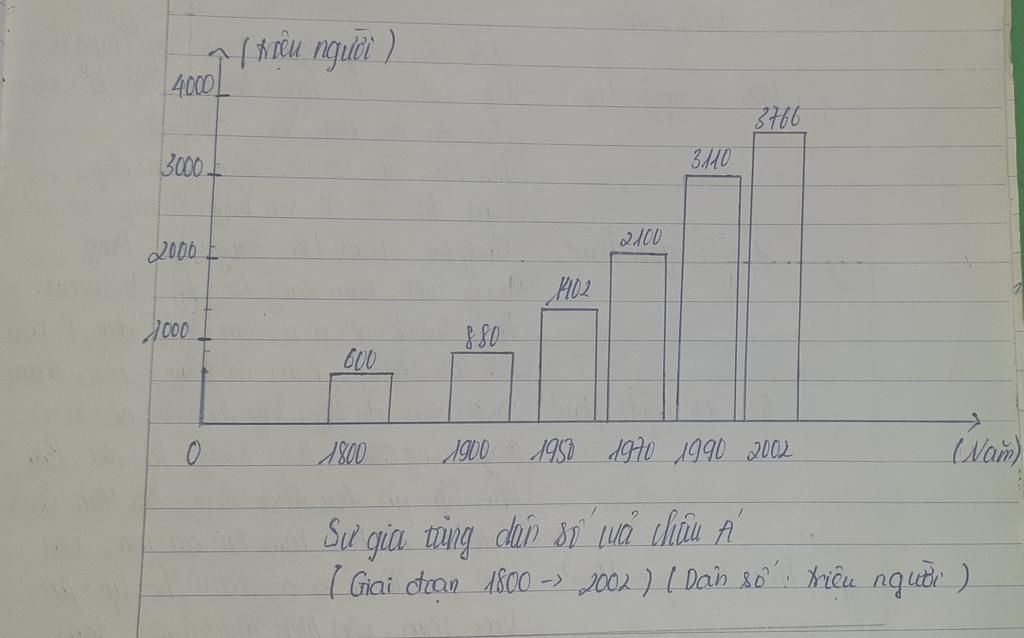 (triệu người)
4000
3766
3000
3110
2000
2100
1402
1000
880
600
0
1800
1900
1950
1970
1990
2002
(Năm)
Sự gia tăng dân số của châu Á
(Giai đoạn 1800 -> 2002) (Dân số : triệu người)